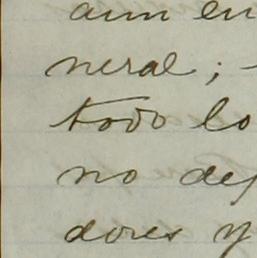 aun en
neral;
todo lo
no des
dores y